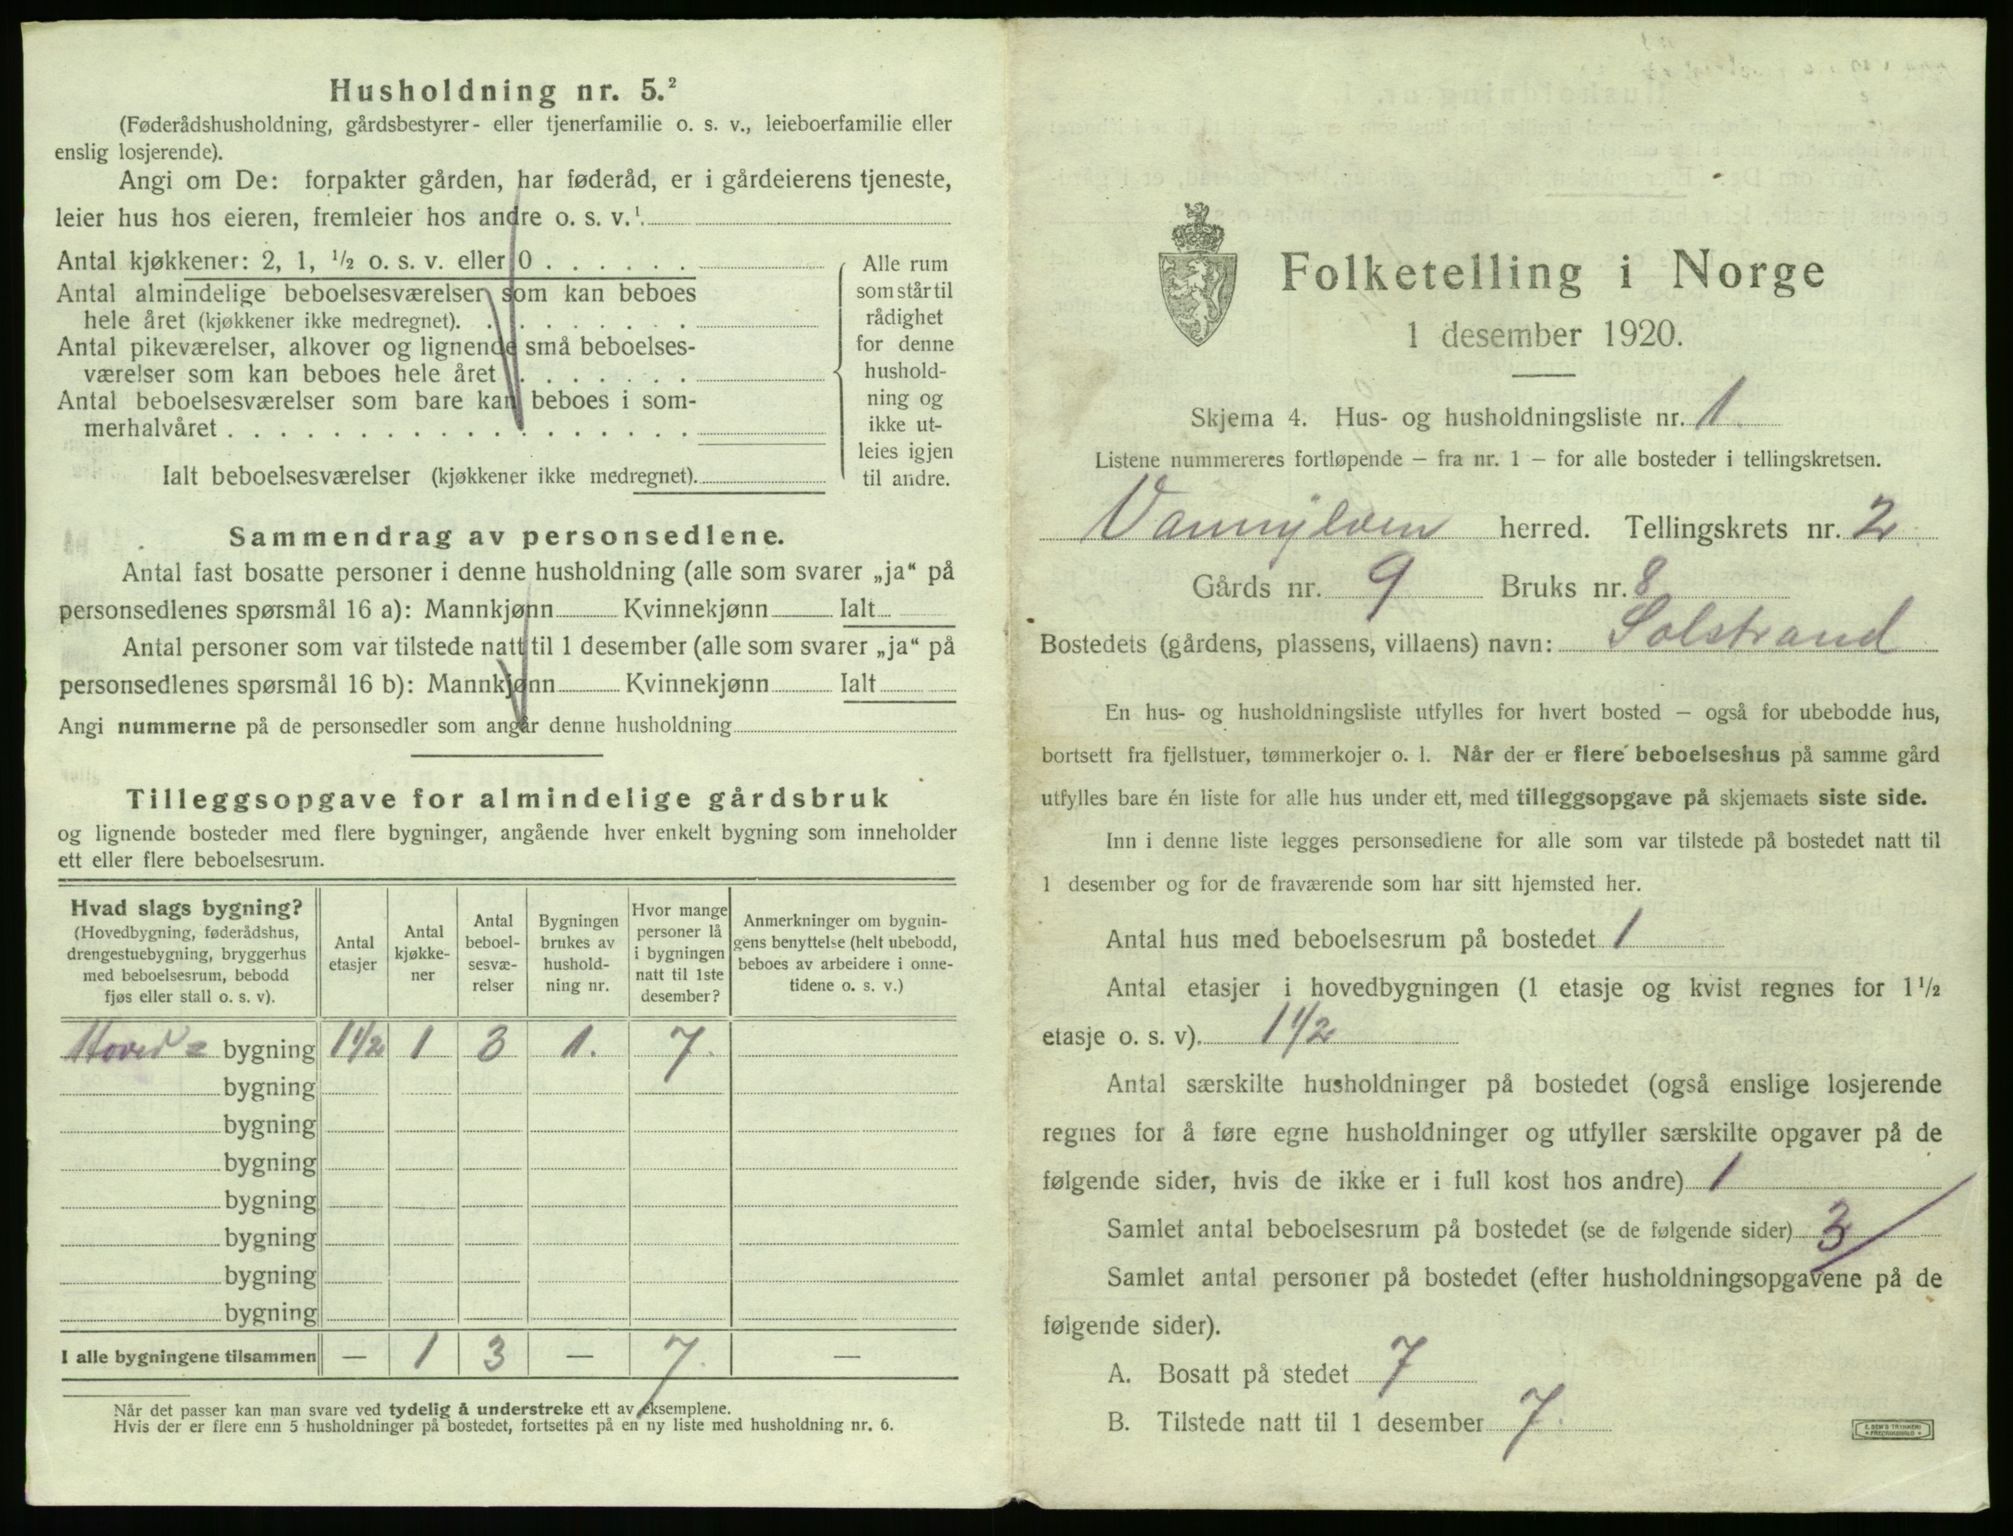 Husholdning nr. 5.²
(Føderådshusholdning, gårdsbestyrer- eller tjenerfamilie o. s. v., leieboerfamilie eller
enslig losjerende).
Angi om De: forpakter gården, har føderåd, er i gårdeierens tjeneste,
leier hus hos eieren, fremleier hos andre o. s. v.¹
Antal kjøkkener: 2, 1, ½ o. s. v. eller 0
Antal almindelige beboelsesværelser som kan beboes
hele året (kjøkkener ikke medregnet).
Antal pikeværelser, alkover og lignende små beboelses-
værelser som kan beboes hele året
Antal beboelsesværelser som bare kan beboes i som-
merhalvåret
Ialt beboelsesværelser (kjøkkener ikke medregnet).
Alle rum
som står til
rådighet
for denne
hushold-
ning og
ikke ut-
leies igjen
til andre.
Sammendrag av personsedlene.
Antal fast bosatte personer i denne husholdning (alle som svarer „ja“ på
personsedlenes spørsmål 16 a): Mannkjønn Kvinnekjønn Ialt
Antal personer som var tilstede natt til 1 desember (alle som svarer „ja“ på
personsedlenes spørsmål 16 b): Mannkjønn Kvinnekjønn Ialt
Angi nummerne på de personsedler som angår denne husholdning
Tilleggsopgave for almindelige gårdsbruk
og lignende bosteder med flere bygninger, angående hver enkelt bygning som inneholder
ett eller flere beboelsesrum.
Hvad slags bygning?
(Hovedbygning, føderådshus,
drengestuebygning, bryggerhus
med beboelsesrum, bebodd
fjøs eller stall o. s. v).
Antal
etasjer
Antal
kjøkke-
ner
Antal
beboel-
sesvæ-
relser
Bygningen
brukes av
hushold-
ning nr.
Hvor mange
personer lå
i bygningen
natt til 1ste
desember?
Anmerkninger om bygnin-
gens benyttelse (helt ubebodd,
beboes av arbeidere i onne-
tidene o. s. v.)
Hoved= bygning 1½ 1 3 1. 7.
bygning
bygning
bygning
bygning
bygning
bygning
bygning
I alle bygningene tilsammen — 1 3 — 7. —
Når det passer kan man svare ved tydelig å understreke ett av eksemplene.
Hvis der er flere enn 5 husholdninger på bostedet, fortsettes på en ny liste med husholdning nr. 6.
Folketelling i Norge
1 desember 1920.
Skjema 4. Hus- og husholdningsliste nr. 1.
Listene nummereres fortløpende – fra nr. 1 – for alle bosteder i tellingskretsen.
Vannylven herred. Tellingskrets nr. 2
Gårds nr. 9 Bruks nr. 8
Bostedets (gårdens, plassens, villaens) navn: Solstrand
En hus- og husholdningsliste utfylles for hvert bosted – også for ubebodde hus,
bortsett fra fjellstuer, tømmerkojer o. l. Når der er flere beboelseshus på samme gård
utfylles bare én liste for alle hus under ett, med tilleggsopgave på skjemaets siste side.
Inn i denne liste legges personsedlene for alle som var tilstede på bostedet natt til
1 desember og for de fraværende som har sitt hjemsted her.
Antal hus med beboelsesrum på bostedet 1
Antal etasjer i hovedbygningen (1 etasje og kvist regnes for 1½
etasje o. s. v). 1½
Antal særskilte husholdninger på bostedet (også enslige losjerende
regnes for å føre egne husholdninger og utfyller særskilte opgaver på de
følgende sider, hvis de ikke er i full kost hos andre) 1
Samlet antal beboelsesrum på bostedet (se de følgende sider) 3
Samlet antal personer på bostedet (efter husholdningsopgavene på de
følgende sider).
A. Bosatt på stedet 7
B. Tilstede natt til 1 desember 7.